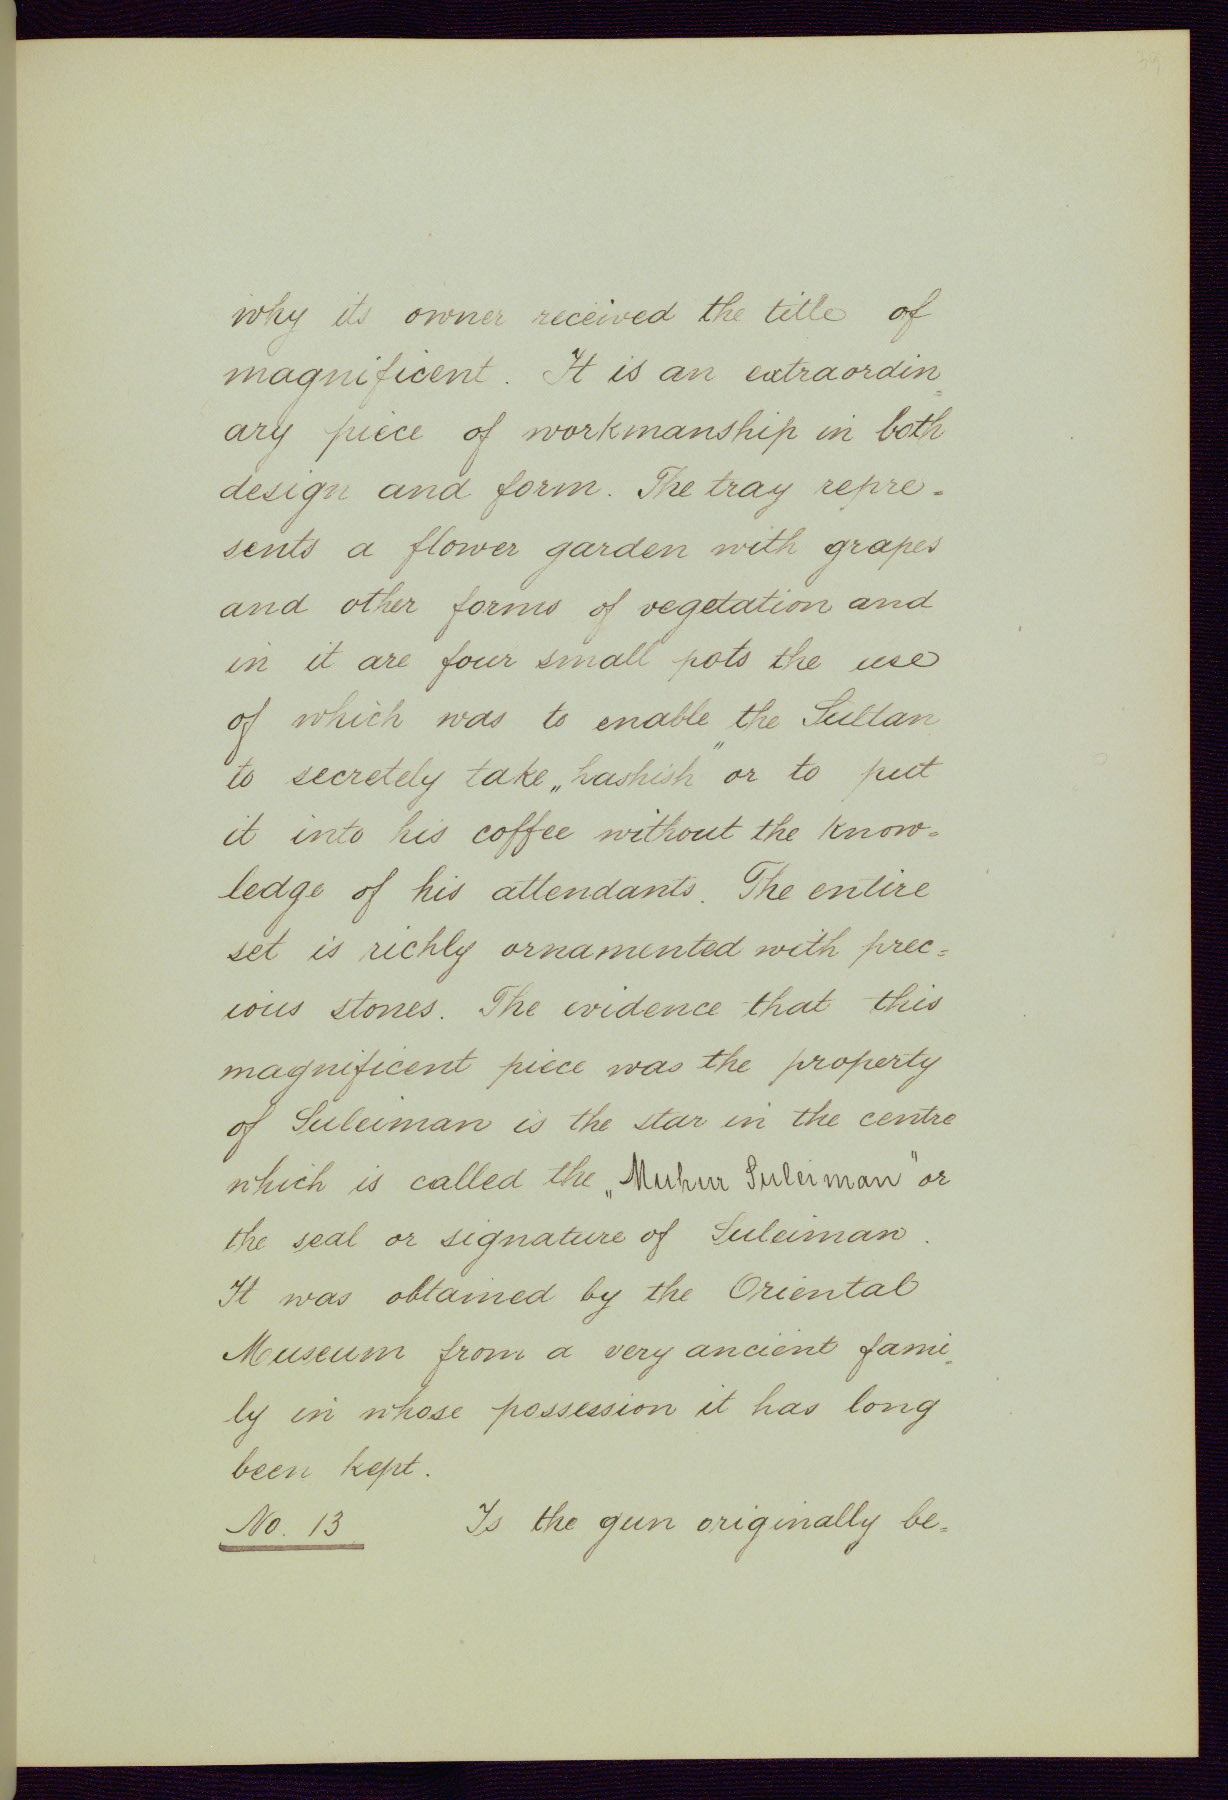 why its owner received the title of
magnificent. It is an extraordin=
ary piece of workmanship in both
design and form. The tray repre=
sents a flower garden with grapes
and other forms of vegetation and
in it are four small pots the use
of which was to enable the Sultan
to secretely take „hashish" or to put
it into his coffee without the know=
ledge of his attendants. The entire
set is richly ornamented with prec=
ious stones. The evidence that this
magnificent piece was the property
of Suleiman is the star in the centre
which is called the „Muhur Suleiman" or
the seal or signature of Suleiman.
It was obtained by the Oriental
Museum from a very ancient fami=
ly in whose possession it has long
been kept.
No. 13 Is the gun originally be=